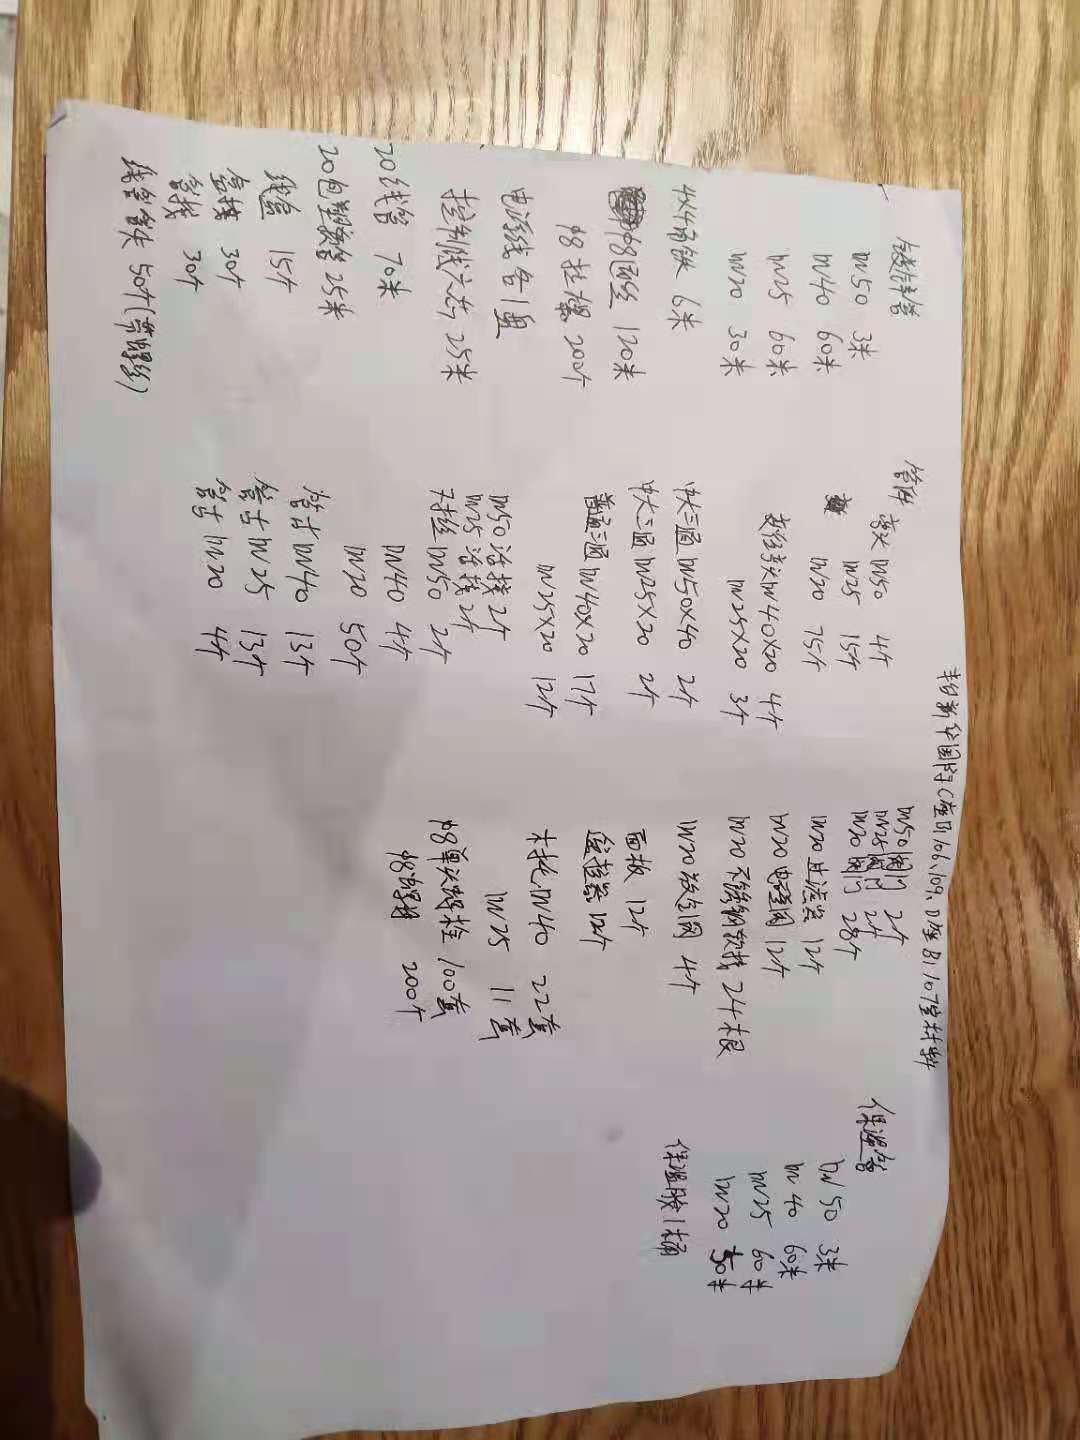 柏新华国际C座B1106、109、D座B1107室材料
镀锌管
DN50 3米
DN40 60米
DN25 60米
DN20 30米
4×4角铁 6米
φ8通丝 120米
φ8拉爆 200个
电源线各1盘
20线管 70米
20包塑软管25米
线盒 15个
盒接 30个
管接 30个
管件
弯头 DN50 4个
DN25 15个
DN20 75个
变径弯头DN40×20 4个
DN25×20 3个
中大三通DN50×40 2个
中大三通DN25×20 2个
普通三通DN40×20 17个
DN25×20 12个
DN50活接2个
DN25活接2个
对丝DN50 2个
DN40 4个
DN20 50个
管古DN40 13个
管古DN25 13个
管古DN20 4个
DN50阀门 2个
DN25阀门 2个
DN20阀门 28个
DN20过滤器 12个
DN20电磁阀 12个
DN20不锈钢软接 24根
DN20放气阀 4个
面板 12个
木托DN40 22套
DN25 11套
φ8单头螺栓 100套
φ8螺母 200个
保温管
DN50 3米
DN40 60米
DN25 60米
DN20 50米
保温胶1桶